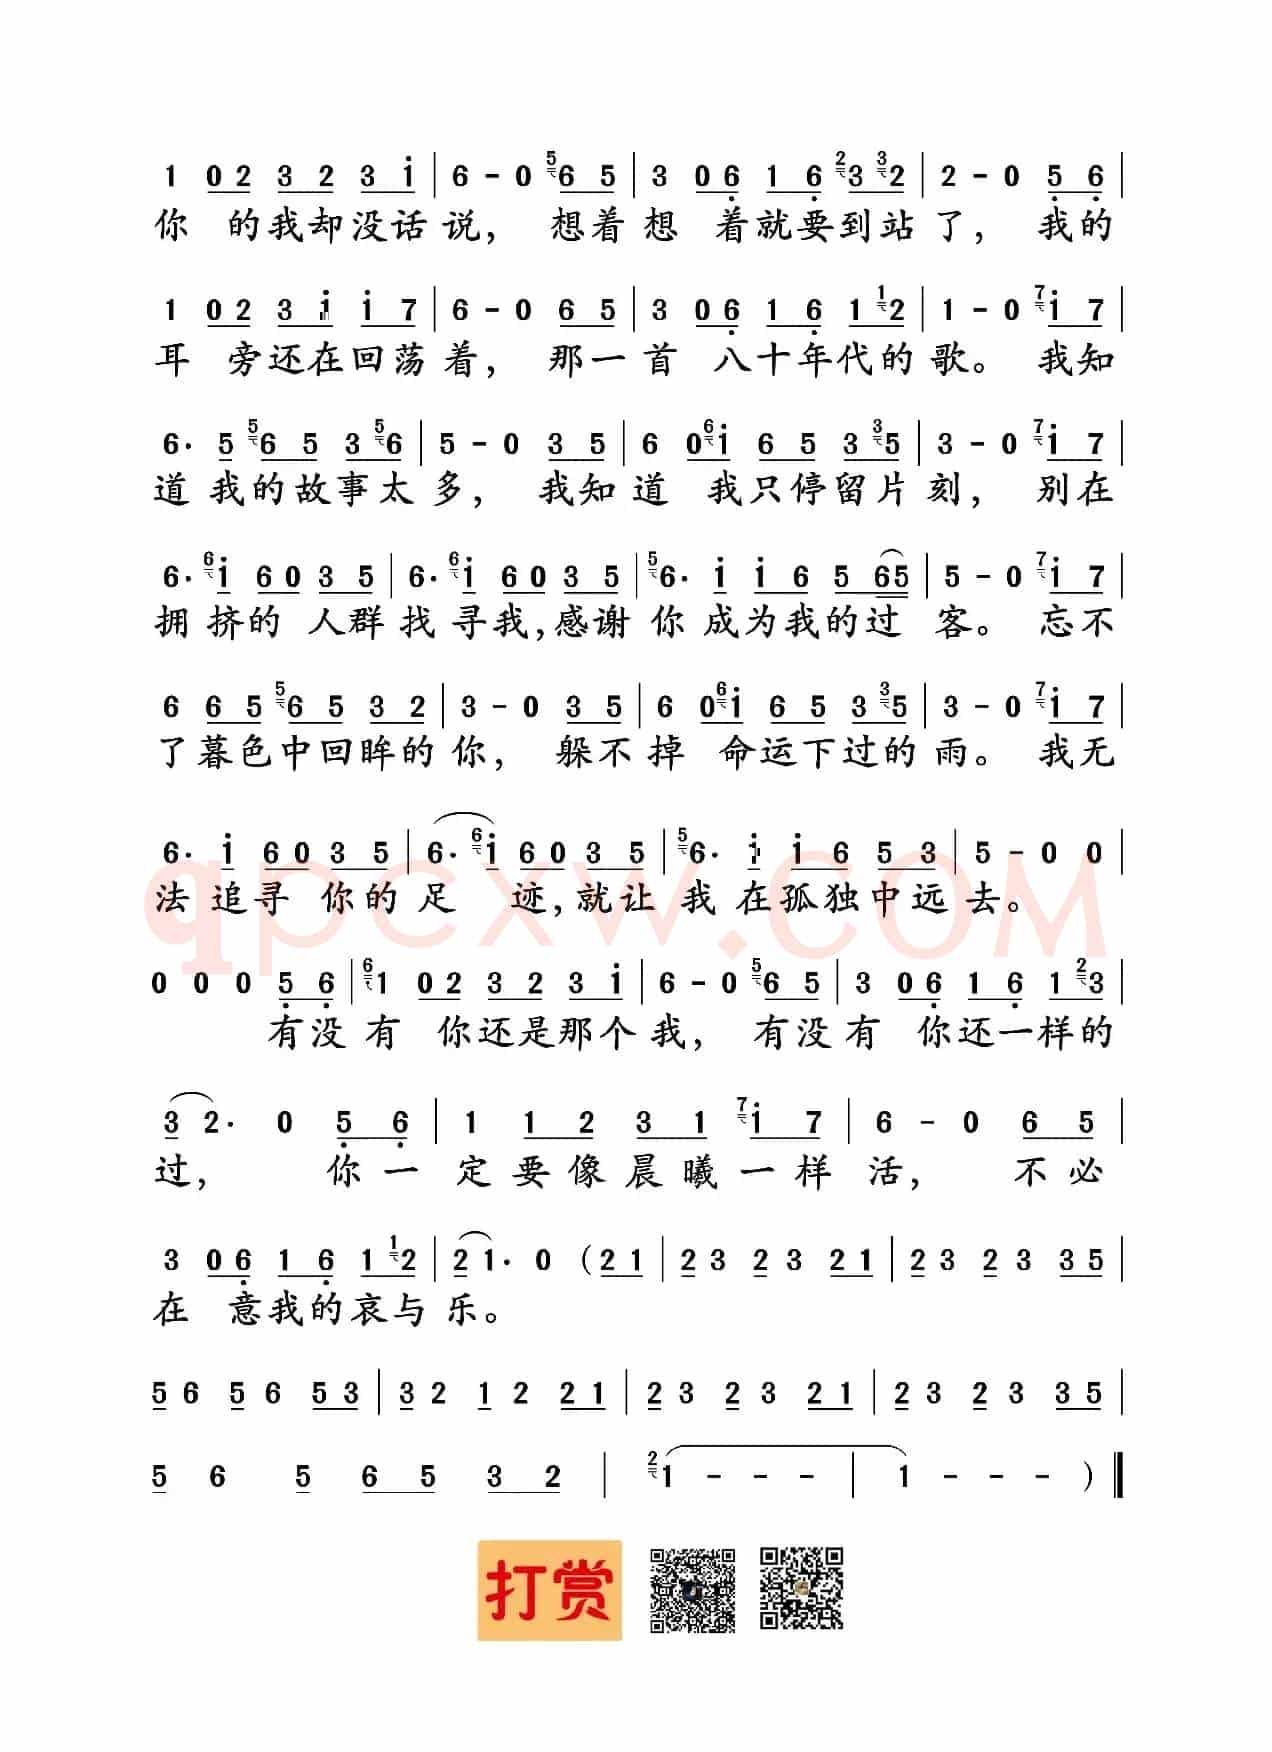 1 02 3 2 3 i | 6 - 0 5 6 5 | 3 06 1 6 2 3 3 2 | 2 - 0 5 6 |
你 的我却没话说， 想着想 着就要到站了， 我的
1 02 3 i i 7 | 6 - 0 6 5 | 3 06 1 6 1 1 2 | 1 - 0 7 i 7 |
耳 旁还在回荡着， 那一首 八十年代的歌。 我知
6. 5 5 6 5 3 5 6 | 5 - 0 3 5 | 6 0 6 i 6 5 3 3 5 | 3 - 0 7 i 7 |
道 我的故事太多， 我知道 我只停留片刻， 别在
6. 6 i 6 0 3 5 | 6. 6 i 6 0 3 5 | 5 6. i i 6 5 65 | 5 - 0 7 i 7 |
拥挤的 人群找寻我,感谢你成为我的过 客。 忘不
6 6 5 5 6 5 3 2 | 3 - 0 3 5 | 6 0 6 i 6 5 3 3 5 | 3 - 0 7 i 7 |
了暮色中回眸的你， 躲不掉 命运下过的雨。 我无
6. i 6 0 3 5 | 6. 6 i 6 0 3 5 | 5 6. i i 6 5 3 | 5 - 0 0
法 追寻 你的足 迹,就让 我 在孤独中远去。
qpcxw.COM
0 0 0 5 6 | 6 1 02 3 2 3 i | 6 - 0 5 6 5 | 3 06 1 6 1 2 3 |
有没有 你还是那个我， 有没有 你还一样的
3 2. 0 5 6 | 1 1 2 3 1 7 i 7 | 6 - 0 6 5 |
过， 你一 定要像晨曦一样 活， 不必
3 06 1 6 1 1 2 | 2 1. 0 (2 1 | 2 3 2 3 2 1 | 2 3 2 3 3 5 |
在 意我的哀与 乐。
5 6 5 6 5 3 | 3 2 1 2 2 1 | 2 3 2 3 2 1 | 2 3 2 3 3 5 |
5 6 5 6 5 3 2 | 2 1 - - - | 1 - - - )
打赏